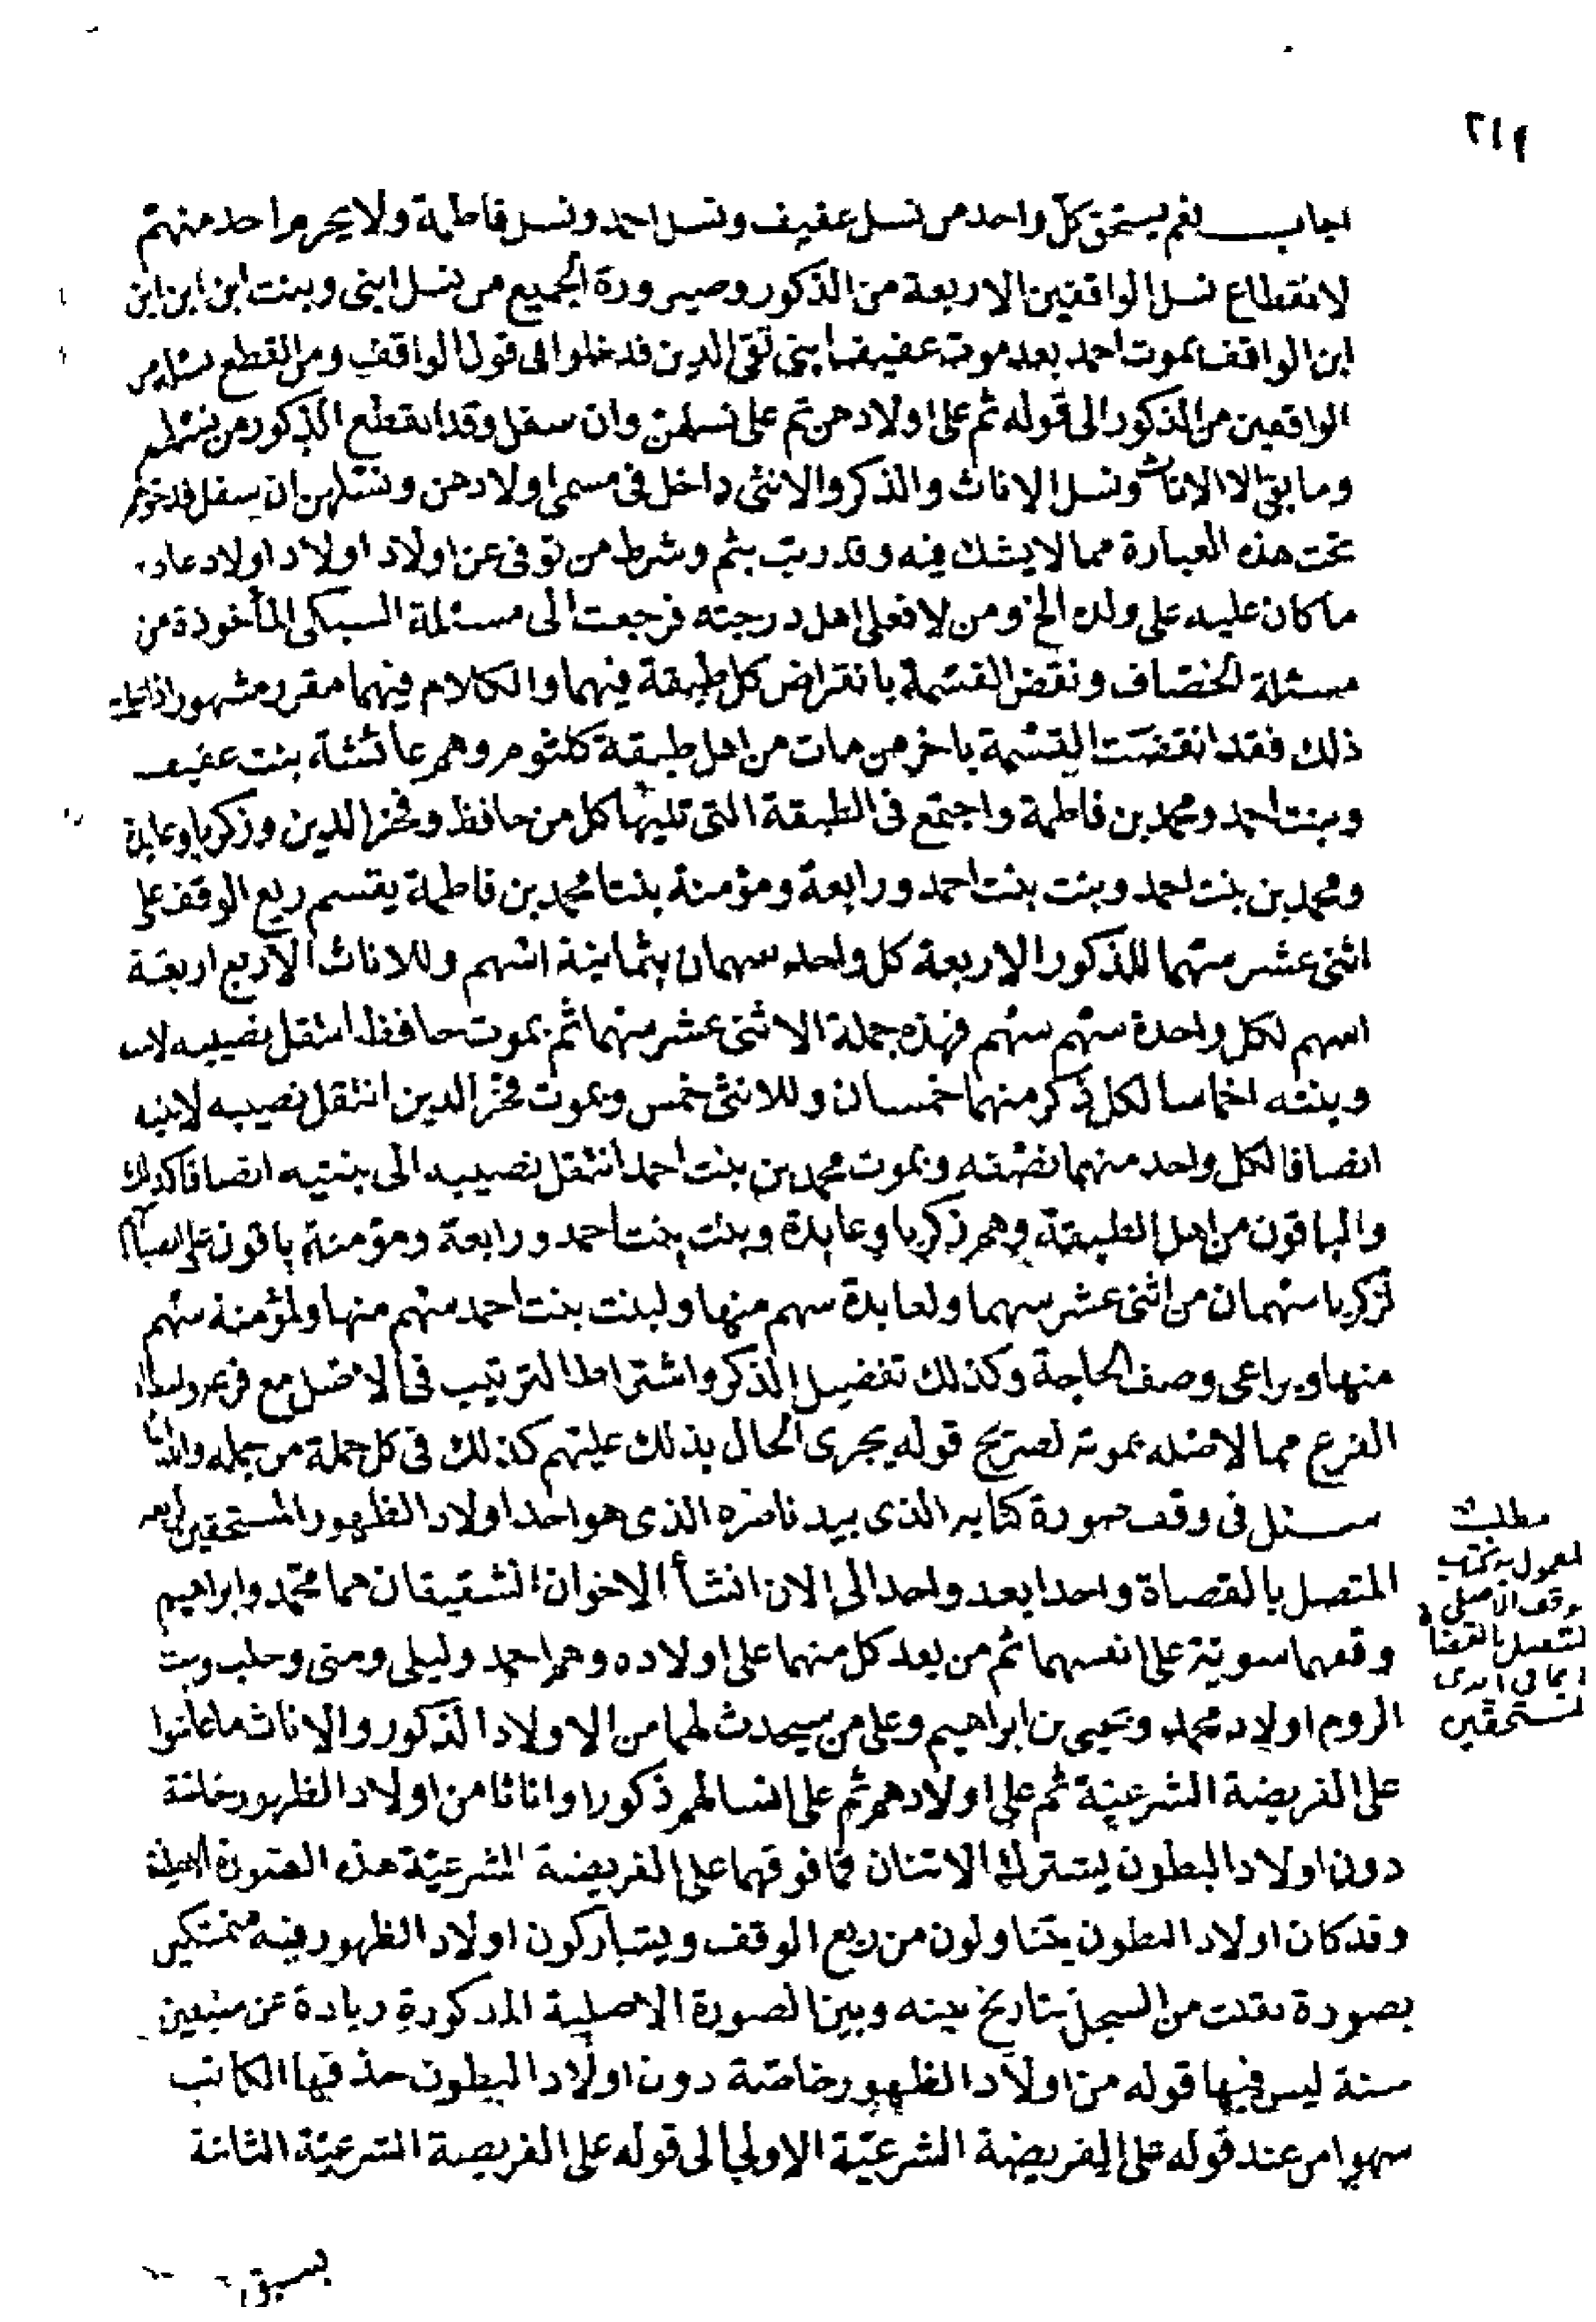 ٢١٢
اجاب نعم يستحق كل واحد من نسل عفيف ونسل احمد ونسل فاطمة ولا يحرم احد منهم
لانقطاع نسل الواقفين الاربعة من الذكور وصيرورة الجميع من نسل ابنى وبنت ابن ابن ابن
ابن الواقف بموت احمد بعد موت عفيف ابنى تقى الدين فدخلوا فى قول الواقف ومن انقطع نسله من
الواقفين من الذكور الى قوله ثم على اولادهن ثم على نسلهن وان سفل وقد انقطع الذكور من نسلهم
وما بقى الا الاناث ونسل الاناث والذكر والانثى داخل فى مسمى اولادهن ونسلهن ان سفل فدخولهم
تحت هذه العبارة مما لا يشك فيه وقد رتب بثم وشرط من توفى عن اولاد اولاد اولاد عاد
ما كان عليه على ولده الخ ومن لا فعلى اهل درجته فرجعت الى مسئلة السبكى المأخوذة من
مسئلة الخصاف ونقض القسمة بانقراض كل طبقة فيهما والكلام فيهما مقرر مشهور اذا علم
ذلك فقد انقضت القسمة باخر من مات من اهل طبقة كلثوم وهم عائشة بنت عفيف
وبنت احمد ومحمد بن فاطمة واجتمع فى الطبقة التى تليها كل من حافظ وفخر الدين وزكريا وعابدة
ومحمد بن بنت احمد وبنت بنت احمد ورابعة ومؤمنة بنتا محمد بن فاطمة يقسم ريع الوقف على
اثنى عشر سهما للذكور الاربعة كل واحد سهمان بثمانية اسهم وللاناث الاربع اربعة
اسهم لكل واحدة سهم سهم فهذه جملة الاثنى عشر سهما ثم بموت حافظ انتقل نصيبه لابنيه
وبنته اخماسا لكل ذكر منهما خمسان وللانثى خمس وبموت فخر الدين انتقل نصيبه لابنيه
انصافا لكل واحد منهما نصفه وبموت محمد بن بنت احمد انتقل نصيبه الى بنتيه انصافا كذلك
والباقون من اهل الطبقة وهم زكريا وعابدة وبنت بنت احمد ورابعة ومؤمنة باقون على
لزكريا سهمان من اثنى عشر سهما ولعابدة سهم منها ولبنت بنت احمد سهم منها ولمؤمنة سهم
منها ويراعى وصف الحاجة وكذلك تفضيل الذكر واشتراط الترتيب فى الاصل مع فرعه
الفرع مما لاصله بموته لصريح قوله يجرى الحال بذلك عليهم كذلك فى كل جملة من جمله
سئل فى وقف صورة كتابه الذى بيد ناظره الذى هو احد اولاد الظهور المستحقين
المتصل بالقضاة واحدا بعد واحد الى الان انشأ الاخوان الشقيقان هما محمد وابراهيم
وقفهما سوية على انفسهما ثم من بعد كل منهما على اولاده وهم احمد وليلى ومنى وحلب وست
الروم اولاد محمد ويحيى بن ابراهيم وعلى من سيحدث لهما من الاولاد الذكور والاناث ما عاشوا
على الفريضة الشرعية ثم على اولادهم ثم على انسالهم ذكورا واناثا من اولاد الظهور خاصة
دون اولاد البطون يشترك الاثنان فما فوقهما على الفريضة الشرعية هذه الصورة الاصلية
وقد كان اولاد البطون يتناولون من ريع الوقف ويشاركون اولاد الظهور فيه متمسكين
بصورة نقلت من السجل بتاريخ بينه وبين الصورة الاصلية المذكورة زيادة عن سبعين
سنة ليس فيها قوله من اولاد الظهور خاصة دون اولاد البطون حذفها الكاتب
سهوا من عند قوله على الفريضة الشرعية الاولى الى قوله على الفريضة الشرعية الثانية
مطلب
المعمول به كتاب
الوقف الاصلى
المتصل بالقضاة
ما فى ايدى
المستحقين
بسبق